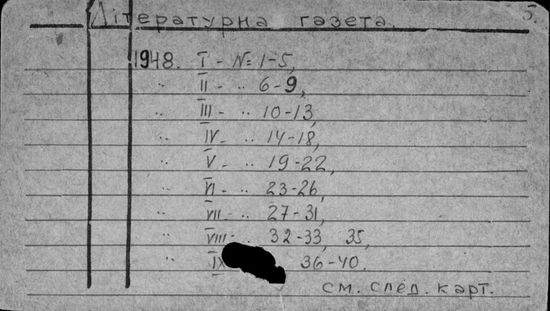 Літературна газета. 5.
1948. I - № 1-5,
" II - " 6-9,
" III - " 10-13,
" IV - " 14-18,
" V - " 19-22,
" VI - " 23-26,
" VII - " 27-31,
" VIII - " 32-33, 35,
" IX 36-40.
см. след. карт.